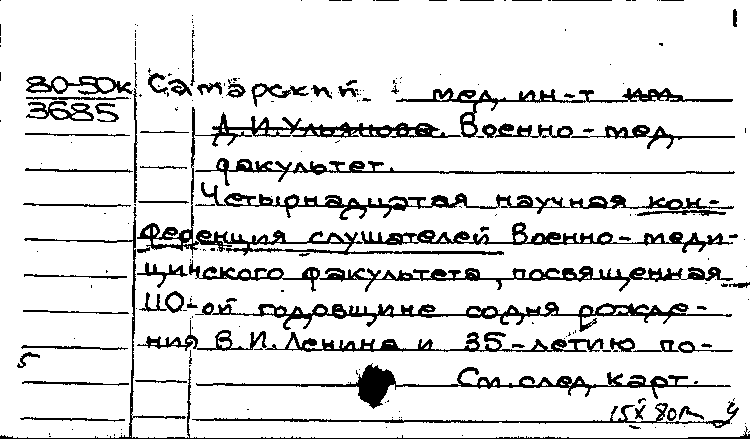 80-50к Самарский мед. ин-т им.
3685 Д.И.Ульянова. Военно-мед.
факультет.
Четырнадцатая научная кон-
ференция слушателей Военно-меди-
цинского факультета, посвященная
110-ой годовщине со дня рожде-
ния В.И.Ленина и 35-летию по-
5
См. след. карт.
15X 80г